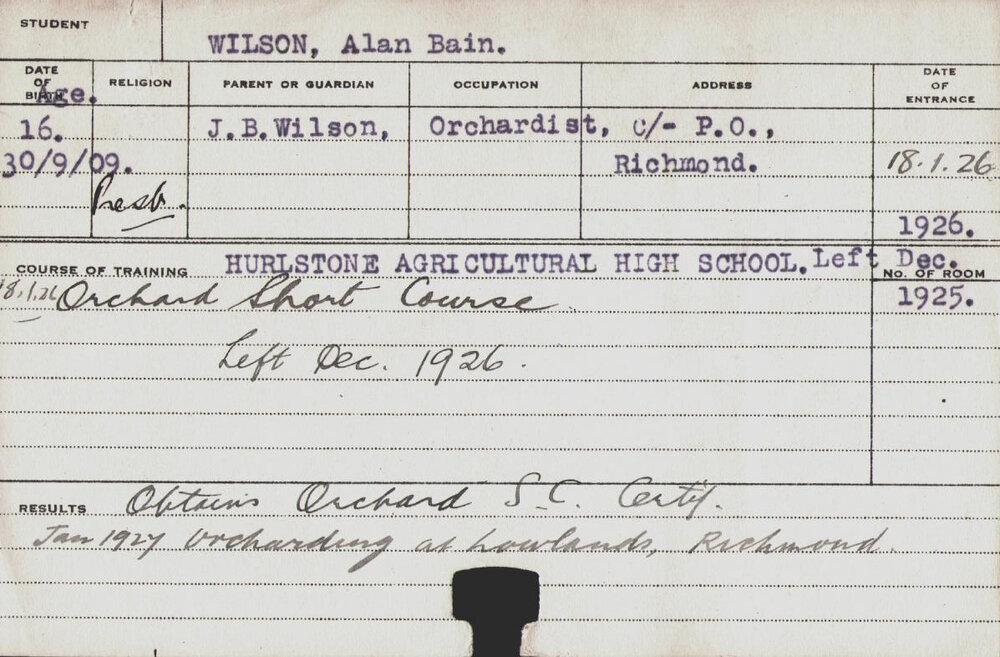 STUDENT
WILSON, Alan Bain.
DATE OF BIRTH RELIGION PARENT OR GUARDIAN OCCUPATION ADDRESS DATE OF ENTRANCE
Age.
16. J.B.Wilson, Orchardist, c/- P.O.,
30/9/09. Richmond. 18.1.26
Presb.
1926.
COURSE OF TRAINING HURLSTONE AGRICULTURAL HIGH SCHOOL. Left Dec.
NO. OF ROOM
18.1.26 Orchard Short Course. 1925.
Left Dec. 1926.
RESULTS Obtains Orchard S.C. Certif.
Jan 1927 Orcharding at Lowlands, Richmond.